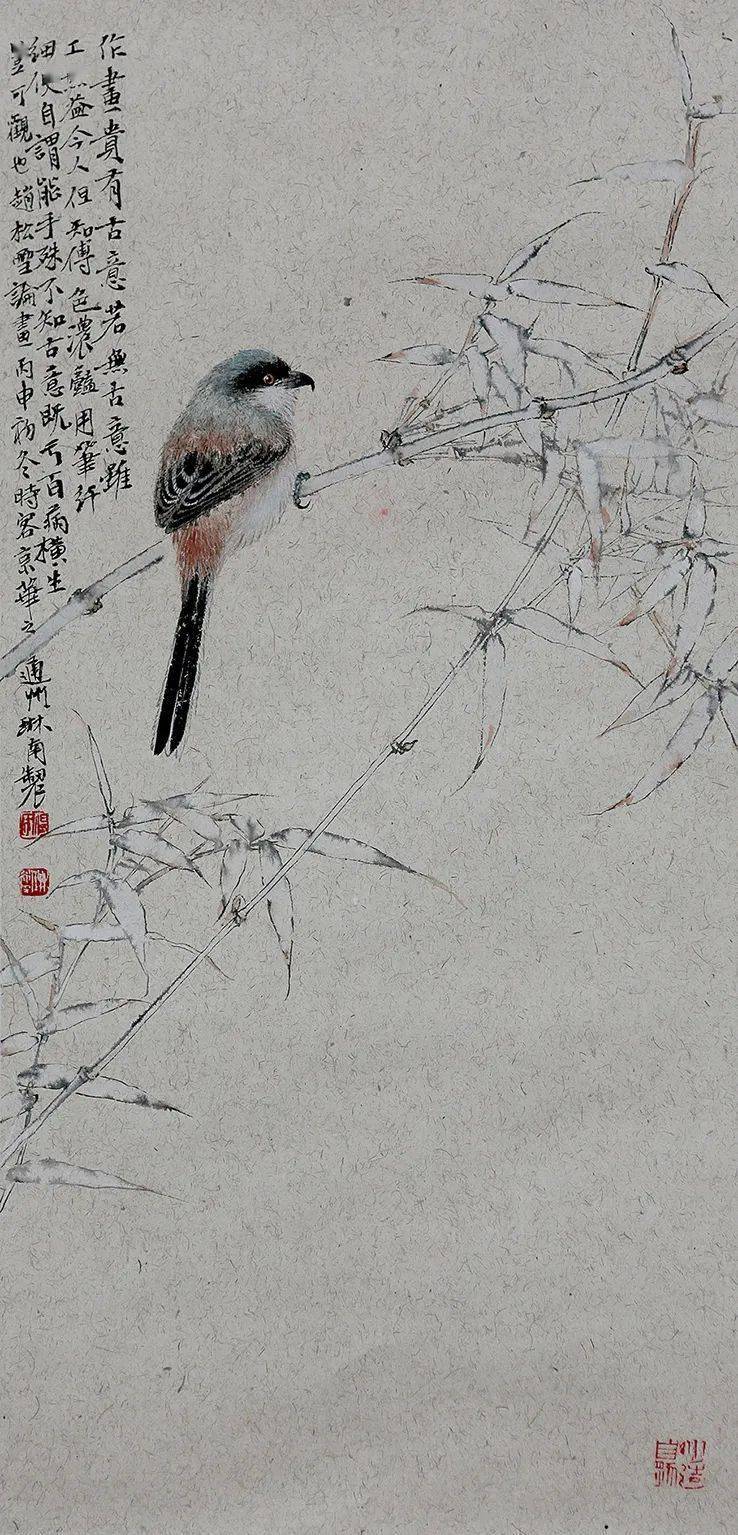 作畫貴有古意若無古意雖
工無益今人但知傅色濃豔用筆纤
細便自謂能手殊不知古意既亏百病橫生
豈可觀也趙松雪論畫丙申初冬時客京華之
通州琳南製